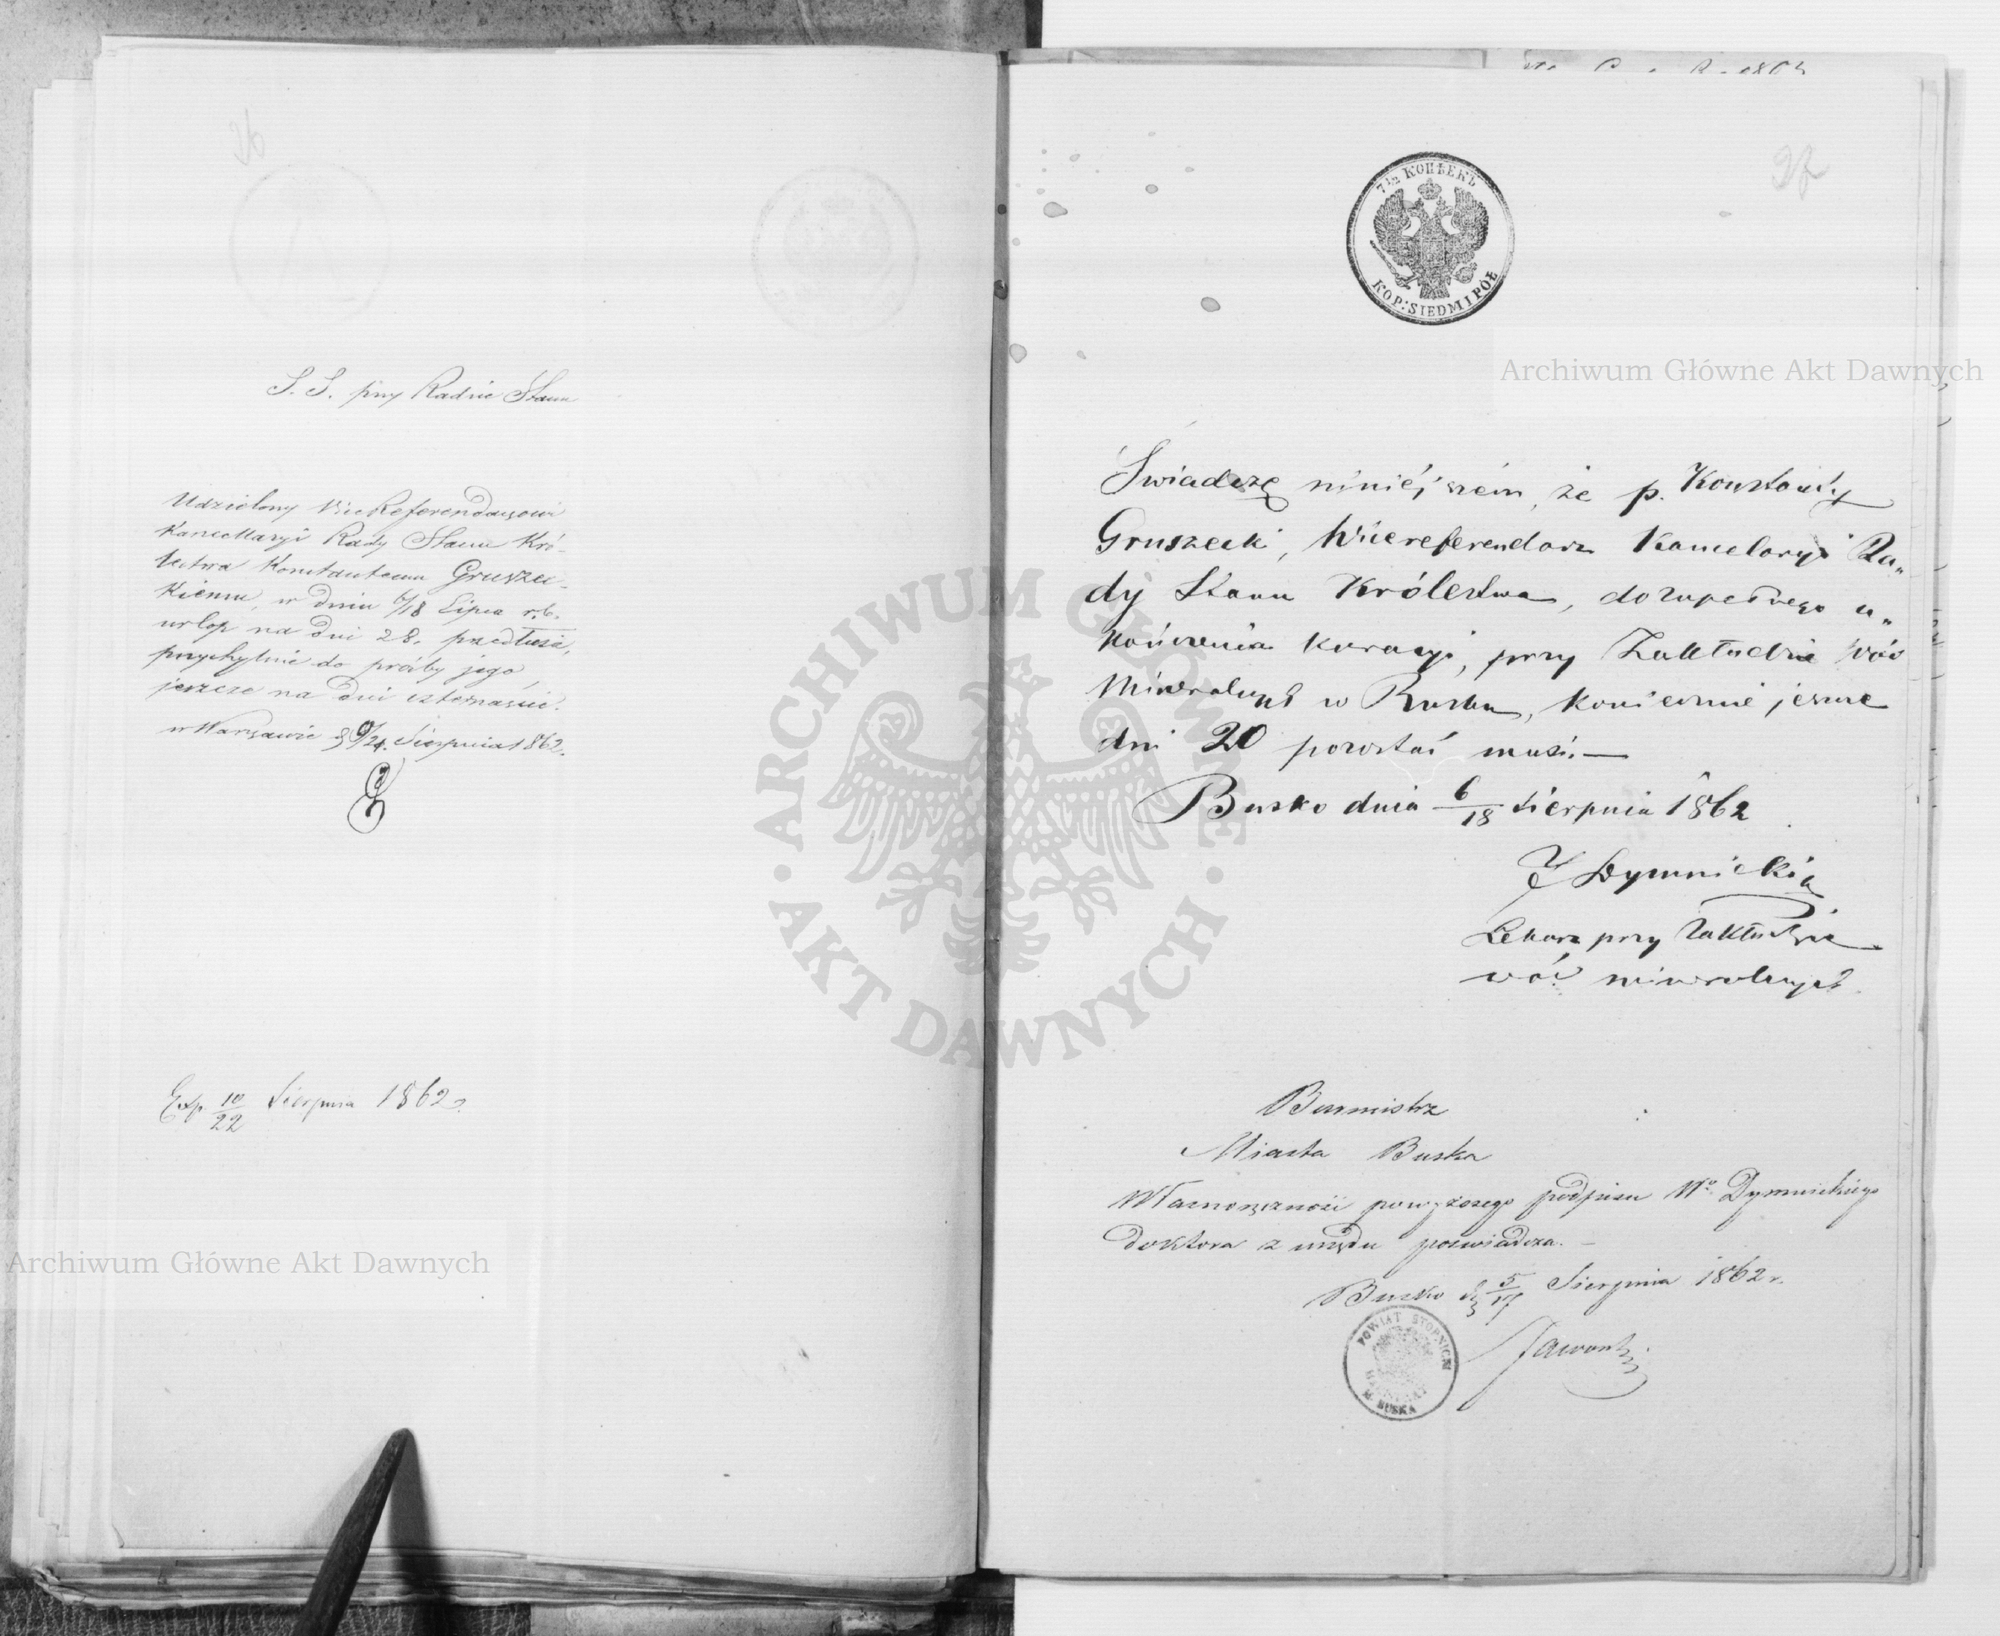 26
S. S. przy Radzie Stanu
Udzielony ViceReferendarzowi
Kancellaryi Rady Stanu Kró-
lestwa Konstantemu Gruszec-
kiemu, w dniu 6/18 Lipca r. b.
urlop na dni 28, przedłuża,
przychylnie do prośby jego,
jeszcze na dni czternaście.
w Warszawie d 9/21 Sierpnia 1862.
Exp 10/22 Sierpnia 1862
27
7 1/2 КОПѢЕКЪ
KOP: SIEDM I PÓŁ
Świadczę niniejszém, że p. Konstanty
Gruszecki, Wicereferendarz Kancelaryi Ra„
dy Stanu Królestwa, do zupełnego u„
kończenia kuracyi, przy Zakładzie wód
Mineralnych w Busku, koniecznie jeszcze
dni 20 pozostać musi.—
Busko dnia 6/18 Sierpnia 1862
Dymnicki
Lekarz przy Zakładzie
wód mineralnych.
Burmistrz
Miasta Buska
Własnoręczność powyższego podpisu Wo Dymnickiego
Doktora z urzędu poświadcza.—
Busko d 5/17 Sierpnia 1862 r.
POWIAT STOPNICKI
M. BUSKA
Archiwum Główne Akt Dawnych
Archiwum Główne Akt Dawnych
ARCHIWUM GŁÓWNE
AKT DAWNYCH